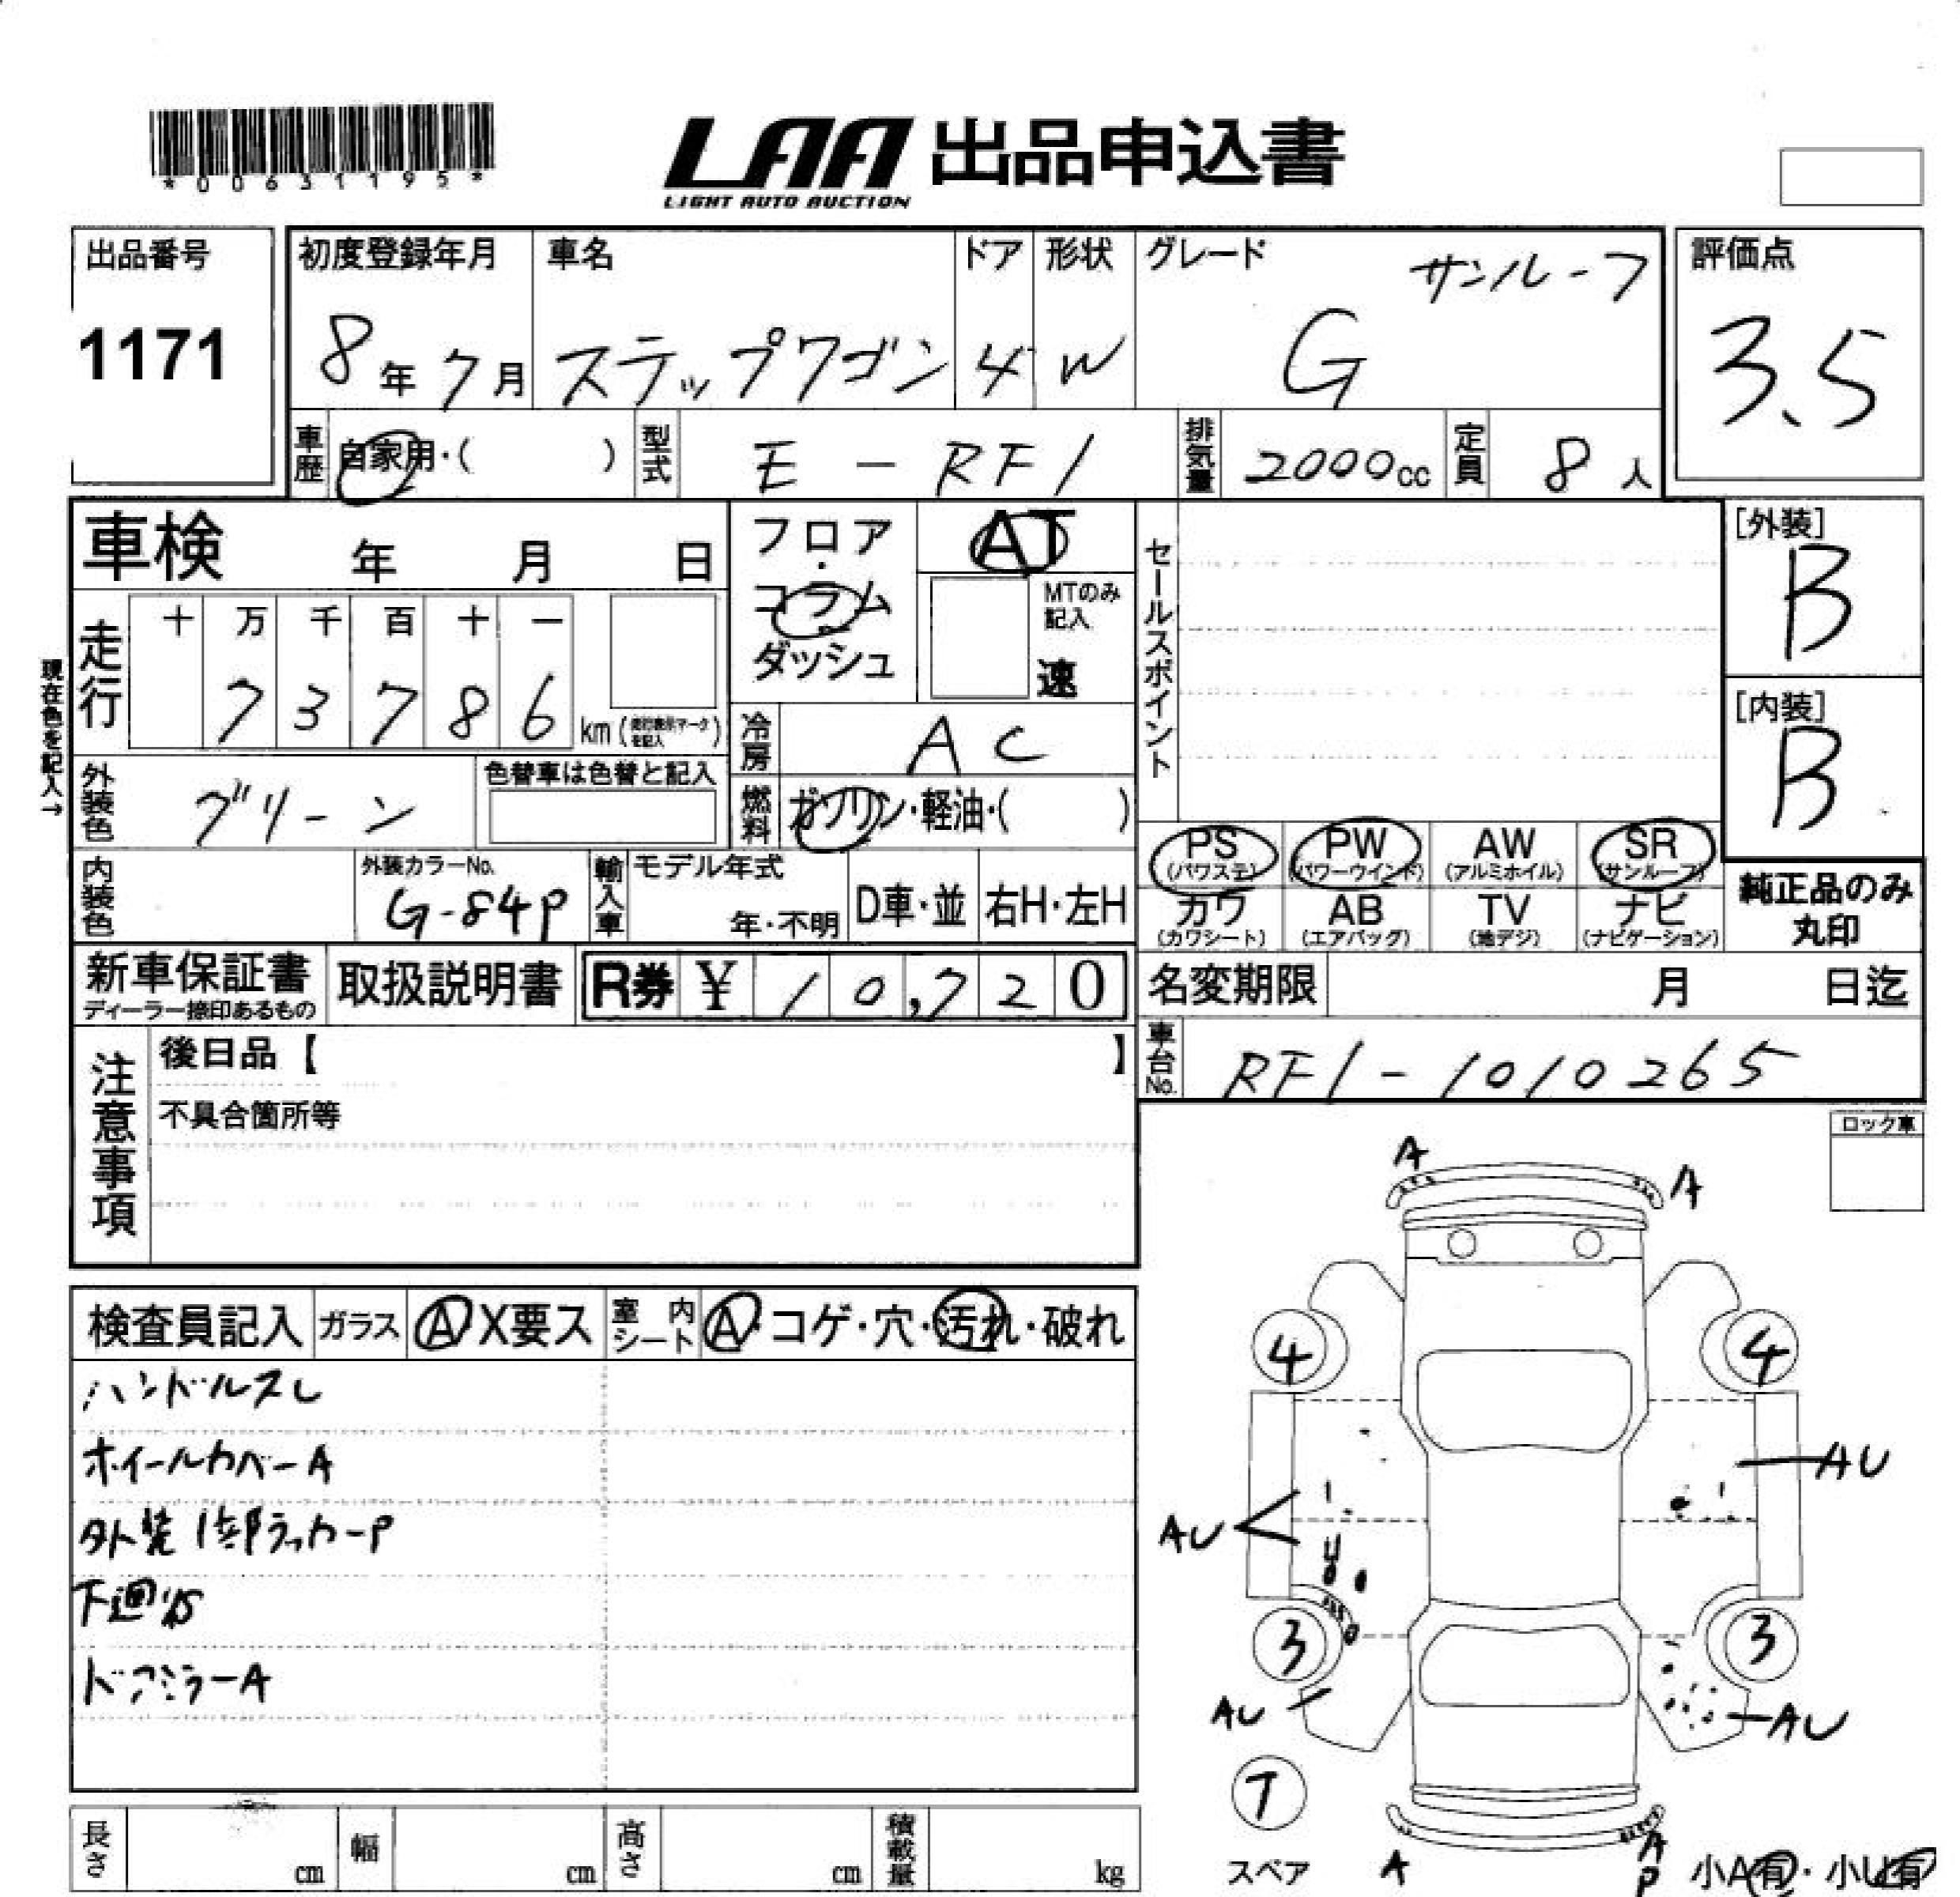 *00631195*
LAA 出品申込書
LIGHT AUTO AUCTION
出品番号
1171
初度登録年月
8年7月
車名
ステップワゴン
ドア
4
形状
W
グレード
サンルーフ
G
評価点
3.5
車歴
自家用・( )
型式
E-RF1
排気量
2000cc
定員
8人
車検 年 月 日
フロア
・
コラム
ダッシュ
AT
MTのみ
記入
速
セールスポイント
[外装]
B
[内装]
B
現在色を記入→
走行
十 万 千 百 十 一
7 3 7 8 6 km
冷房
AC
外装色
グリーン
色替車は色替と記入
燃料
ガソリン・軽油・( )
PS
(パワステ)
PW
(パワーウインド)
AW
(アルミホイル)
SR
(サンルーフ)
カワ
(カワシート)
AB
(エアバッグ)
TV
(地デジ)
ナビ
(ナビゲーション)
純正品のみ
丸印
内装色
外装カラーNo.
G-84P
輸入車
モデル年式
年・不明
D車・並
右H・左H
新車保証書
ディーラー捺印あるもの
取扱説明書
R券 ¥ 10,720
名変期限 月 日迄
車台No.
RF1-1010265
注意事項
後日品【 】
不具合箇所等
ロック車
検査員記入
ガラス
A X要ス
室内シート
A・コゲ・穴・汚れ・破れ
ハンドルスレ
ホイールカバーA
外装1部ラッカーP
下廻
ドアミラーA
A
A
4
4
AU
AU
U
3
3
AU
AU
T
スペア
A
A
P
小A有・小U有
長さ cm
幅 cm
高さ cm
積載量 kg